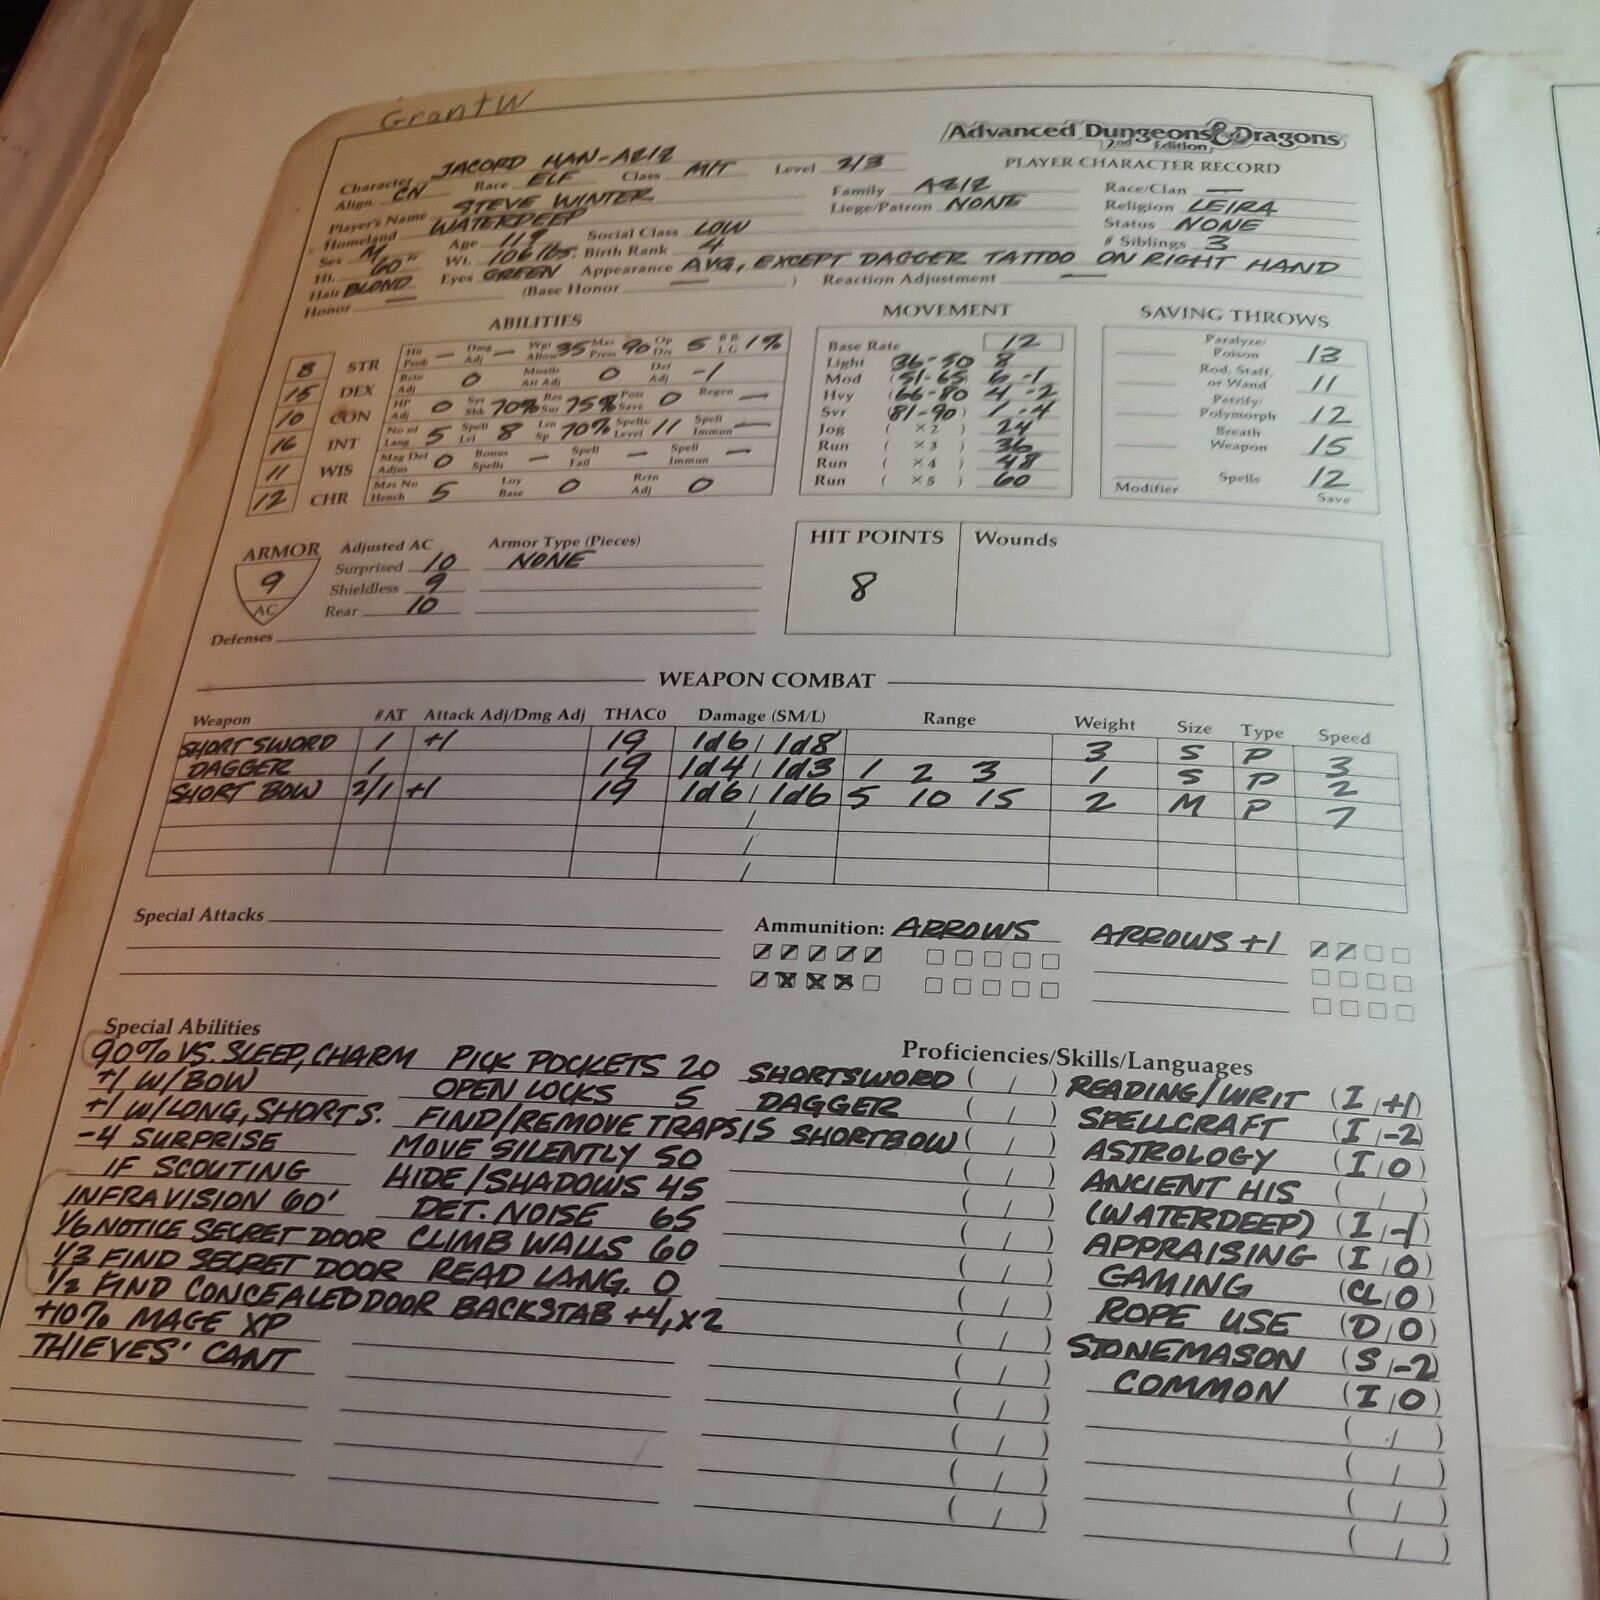 GrantW
Advanced Dungeons & Dragons
2nd Edition
PLAYER CHARACTER RECORD
Character JACORD HAN-AZIZ
Align. CN Race ELF Class M/T Level 2/3
Player's Name STEVE WINTER
Family AZIZ Race/Clan —
Homeland WATERDEEP
Liege/Patron NONE Religion LEIRA
Sex M Age 119 Social Class LOW Status NONE
Ht. 60" Wt. 106 lbs. Birth Rank 4 # Siblings 3
Hair BLOND Eyes GREEN Appearance AVG, EXCEPT DAGGER TATTOO ON RIGHT HAND
Honor — (Base Honor — ) Reaction Adjustment —
ABILITIES
8 STR Hit Prob — Dmg Adj — Wgt Allow 35 Max Press 90 Op Drs 5 BB/LG 1%
15 DEX Rctn Adj 0 Missile Att Adj 0 Def Adj -1
10 CON HP Adj 0 Sys Shk 70% Res Sur 75% Pois Save 0 Regen —
16 INT No of Lang 5 Spell Lvl 8 Lrn Sp 70% Spells/Level 11 Spell Immun —
11 WIS Mag Def Adjus 0 Bonus Spells — Spell Fail — Spell Immun —
12 CHR Max No Hench 5 Loy Base 0 Rctn Adj 0
MOVEMENT
Base Rate 12
Light (36-50 8
Mod (51-65) 6 -1
Hvy (66-80 4 -2
Svr (81-90) 1 -4
Jog ( ×2 ) 24
Run ( ×3 ) 36
Run ( ×4 ) 48
Run ( ×5 ) 60
SAVING THROWS
Paralyze/Poison 13
Rod, Staff, or Wand 11
Petrify/Polymorph 12
Breath Weapon 15
Spells 12
Modifier Save
ARMOR
9
AC
Adjusted AC
Surprised 10
Shieldless 9
Rear 10
Armor Type (Pieces)
NONE
Defenses
HIT POINTS
8
Wounds
WEAPON COMBAT
Weapon #AT Attack Adj/Dmg Adj THAC0 Damage (SM/L) Range Weight Size Type Speed
SHORT SWORD 1 +1 19 1d6 / 1d8 3 S P 3
DAGGER 1 19 1d4 / 1d3 1 2 3 1 S P 2
SHORT BOW 2/1 +1 19 1d6 / 1d6 5 10 15 2 M P 7
Special Attacks
Ammunition: ARROWS
ARROWS +1
Special Abilities
90% VS. SLEEP, CHARM
+1 W/BOW
+1 W/LONG, SHORT S.
-4 SURPRISE
IF SCOUTING
INFRAVISION 60'
1/6 NOTICE SECRET DOOR
1/3 FIND SECRET DOOR
1/2 FIND CONCEALED DOOR
+10% MAGE XP
THIEVES' CANT
PICK POCKETS 20
OPEN LOCKS 5
FIND/REMOVE TRAPS 15
MOVE SILENTLY 50
HIDE/SHADOWS 45
DET. NOISE 65
CLIMB WALLS 60
READ LANG. 0
BACKSTAB +4, x2
Proficiencies/Skills/Languages
SHORTSWORD ( / )
DAGGER ( / )
SHORTBOW ( / )
READING/WRIT (I / +1)
SPELLCRAFT (I / -2)
ASTROLOGY (I / 0)
ANCIENT HIS ( / )
(WATERDEEP) (I / -1)
APPRAISING (I / 0)
GAMING (CL / 0)
ROPE USE (D / 0)
STONEMASON (S / -2)
COMMON (I / 0)